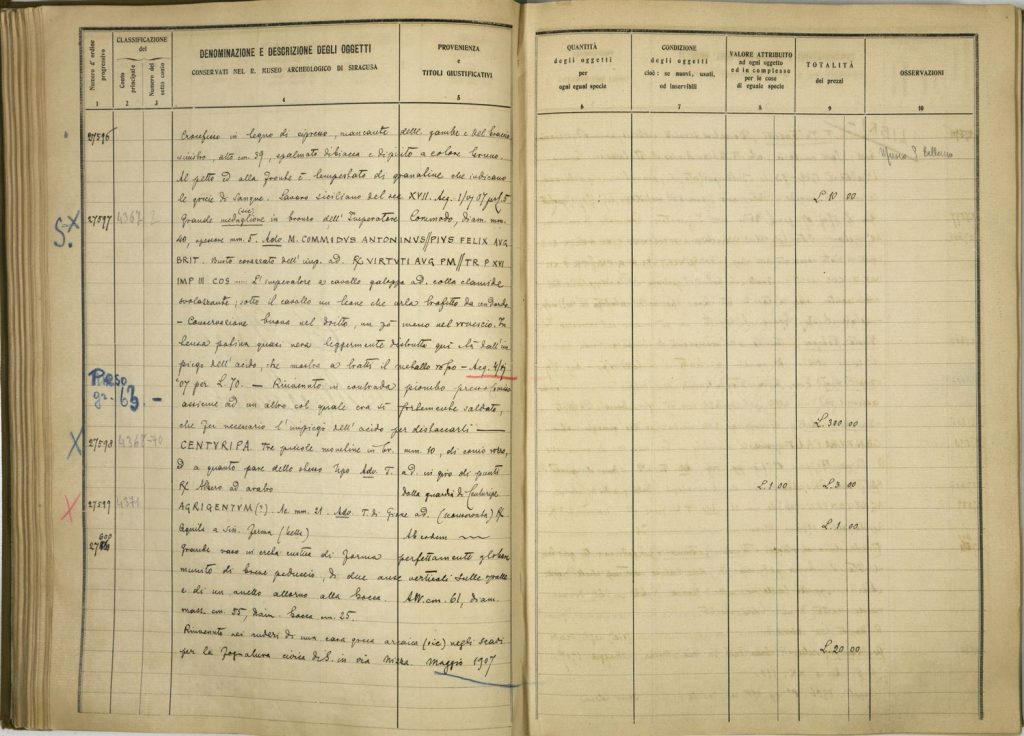 Numero d'ordine progressivo
CLASSIFICAZIONE del
Conto principale
Numero del sotto conto
DENOMINAZIONE E DESCRIZIONE DEGLI OGGETTI
CONSERVATI NEL R. MUSEO ARCHEOLOGICO DI SIRACUSA
PROVENIENZA
e
TITOLI GIUSTIFICATIVI
1 2 3 4 5
QUANTITÀ
degli oggetti
per
ogni egual specie
CONDIZIONE
degli oggetti
cioè: se nuovi, usati,
od inservibili
VALORE ATTRIBUITO
ad ogni oggetto
ed in complesso
per le cose
di eguale specie
TOTALITÀ
dei prezzi
OSSERVAZIONI
6 7 8 9 10
27596 Crocefisso in legno di cipresso, mancante delle gambe e del braccio
sinistro, alto cm. 39, spalmato di biacca e dipinto a colore bruno.
Al petto ed alla fronte è tempestato di granatine che indicano
le goccie di sangue. Lavoro siciliano del sec. XVII. Acq. 07 per L. 5
L. 10 00
S. X 27597 4367 Grande medaglione (sic) in bronzo dell' Imperatore Commodo, diam. mm.
40, spessore mm. 5. Adv. M. COMMIDVS ANTONINVS//PIVS FELIX AVG
BRIT. Busto corazzato dell' imp. ad. R/ VIRTVTI AVG PM//TR P XVI
IMP III COS ---- L' imperatore a cavallo galoppa ad. colla clamide
svolazzante; sotto il cavallo un leone che urla trafitto da
- Conservazione buona nel dritto, un pò meno nel rovescio.
patina quasi nera leggermente distrutta quà e là dall' im
piego dell' acido, che mostra a tratti il metallo - Acq.
Peso gr. 63. - 07 per L. 70. — Rinvenuto in contrada piombo presso
assieme ad un altro col quale era sì fortemente saldato,
che fu necessario l' impiego dell' acido per distaccarli —
L. 300 00
X 27598 4368-70 CENTVRIPA. Tre piccole monetine in br. mm. 10, di conio rozzo,
e a quanto pare dello stesso tipo Adv. T. ad. in giro di punti
R/ Albero ad arabo dalla guardia di Centuripe
L. 1 00 L. 3 00
X 27599 4371 AGRIGENTVM (?). Ae mm. 21. Adv. T. di Giove ad. R/
Aquila a sin. ferma (bella) Ab eodem
L. 1 00
27600 Grande vaso in creta rustica di forma perfettamente globare
munito di breve peduccio, di due anse verticali sulle spalle
e di un anello attorno alla bocca. Alt. cm. 61, diam.
mass. cm. 55, diam. bocca cm. 25.
Rinvenuto nei ruderi di una casa greca arcaica (sic) negli scavi
per la fognatura civica di S. in via Maggio 1907
L. 20 00